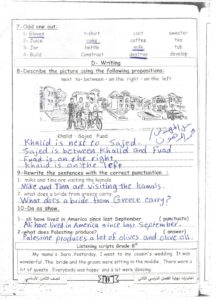 7- Odd one out:
1- Gloves t-shirt coat sweater
2- Juice cake coffee tea
3- Jar bottle milk tub
4- Build Construct destroy develop
D- Writing
8-Describe the picture using the following prepositions:
next to- between - on the right - on the left
Khalid Sajed Fuad
Khalid is next to Sajed.
Sajed is between Khalid and Fuad
Fuad is on the right
Khalid is on the left
9-Rewrite the sentences with the correct punctuation
1- mike and tina are visiting the kamals
Mike and Tina are visiting the kamals.
2- what does a bride from greece carry?
What does a bride from Greece carry?
10-Do as show.
1- ali have lived in America since last September. (punctuate)
Ali have lived in America since last September.
2- what does Palestine produce? (answer)
Palestine produce a lot of olives and olive oil.
Listening scripts Grade 6th
My name is Sara. Yesterday, I went to my cousin's wedding. It was
wonderful. The bride and the groom were sitting in the middle. There were a
lot of guests. Everybody was happy and a lot were dancing